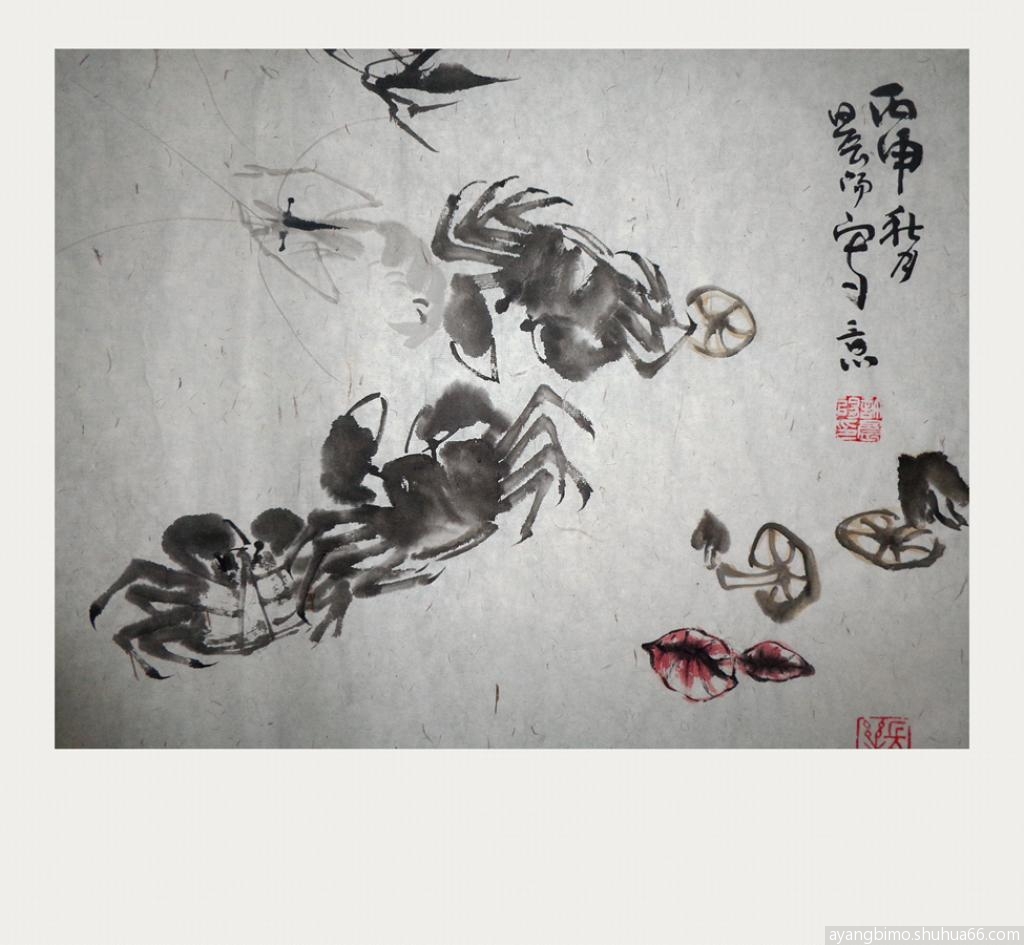 丙申秋月
晨阳写意
ayangbimo.shuhua66.com